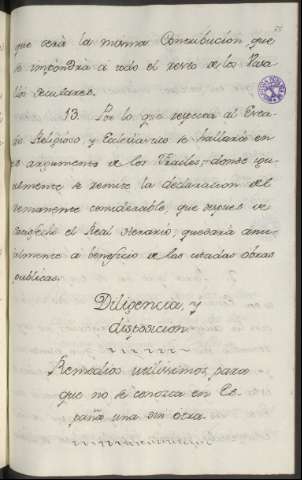 que será la misma Contribucion que
se impondrá á todo el resto de los Vasa
llos seculares.
13. Por lo que respecta al Esta
do Religioso, y Eclesiastico se hallará en
el argumento de los Frailes, donde igu
almente se remite la declaracion del
remanente considerable, que despues de
satisfecho el Real Herario, quedará anu
almente a beneficio de las citadas obras
publicas.
Diligencia, y
disposicion
Remedios utilisimos para
que no se conozca en Es
paña una sin otra.